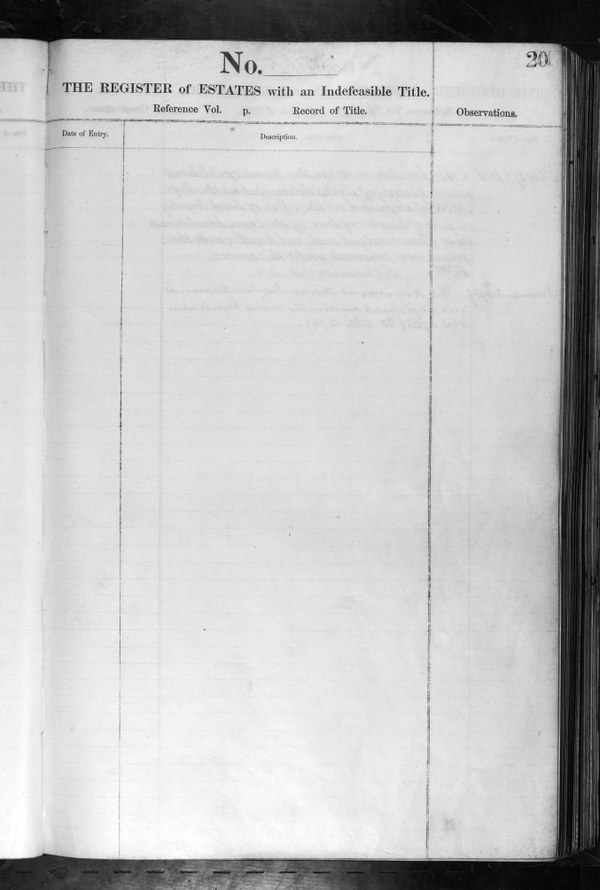 No.
20
THE REGISTER of ESTATES with an Indefeasible Title.
Reference Vol. p. Record of Title.
Observations.
Date of Entry.
Description.